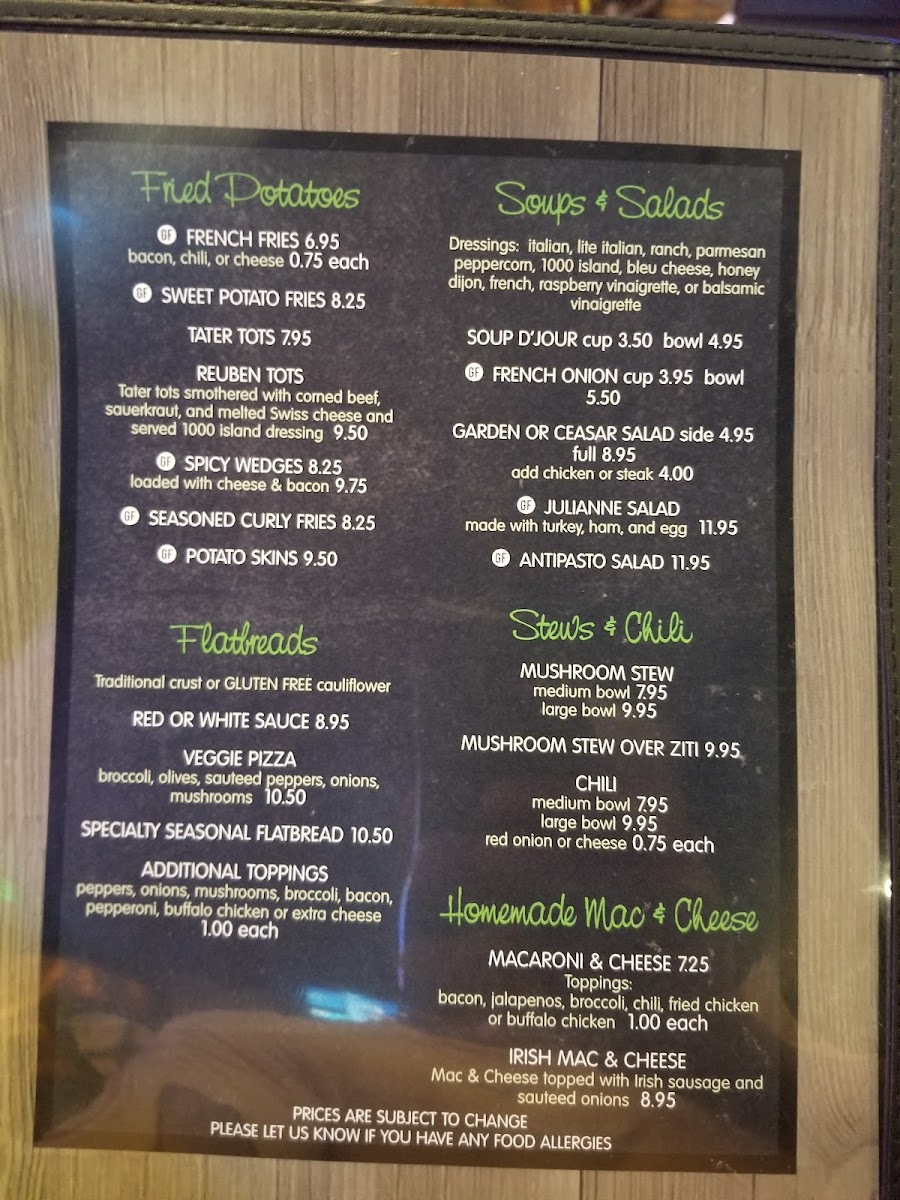 Fried Potatoes
GF FRENCH FRIES 6.95
bacon, chili, or cheese 0.75 each
GF SWEET POTATO FRIES 8.25
TATER TOTS 7.95
REUBEN TOTS
Tater tots smothered with corned beef,
sauerkraut, and melted Swiss cheese and
served 1000 island dressing 9.50
GF SPICY WEDGES 8.25
loaded with cheese & bacon 9.75
GF SEASONED CURLY FRIES 8.25
GF POTATO SKINS 9.50
Flatbreads
Traditional crust or GLUTEN FREE cauliflower
RED OR WHITE SAUCE 8.95
VEGGIE PIZZA
broccoli, olives, sauteed peppers, onions,
mushrooms 10.50
SPECIALTY SEASONAL FLATBREAD 10.50
ADDITIONAL TOPPINGS
peppers, onions, mushrooms, broccoli, bacon,
pepperoni, buffalo chicken or extra cheese
1.00 each
Soups & Salads
Dressings: italian, lite italian, ranch, parmesan
peppercorn, 1000 island, bleu cheese, honey
dijon, french, raspberry vinaigrette, or balsamic
vinaigrette
SOUP D'JOUR cup 3.50 bowl 4.95
GF FRENCH ONION cup 3.95 bowl
5.50
GARDEN OR CEASAR SALAD side 4.95
full 8.95
add chicken or steak 4.00
GF JULIANNE SALAD
made with turkey, ham, and egg 11.95
GF ANTIPASTO SALAD 11.95
Stews & Chili
MUSHROOM STEW
medium bowl 7.95
large bowl 9.95
MUSHROOM STEW OVER ZITI 9.95
CHILI
medium bowl 7.95
large bowl 9.95
red onion or cheese 0.75 each
Homemade Mac & Cheese
MACARONI & CHEESE 7.25
Toppings:
bacon, jalapenos, broccoli, chili, fried chicken
or buffalo chicken 1.00 each
IRISH MAC & CHEESE
Mac & Cheese topped with Irish sausage and
sauteed onions 8.95
PRICES ARE SUBJECT TO CHANGE
PLEASE LET US KNOW IF YOU HAVE ANY FOOD ALLERGIES